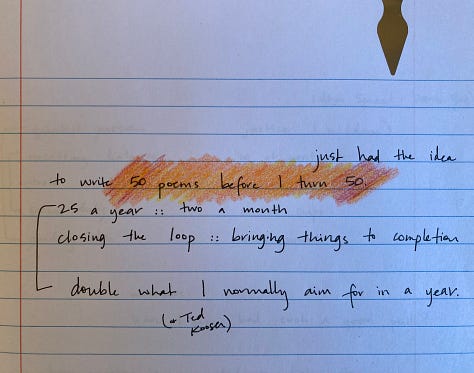 just had the idea
to write 50 poems before I turn 50.
25 a year :: two a month
closing the loop :: bringing things to completion
double what I normally aim for in a year.
(a Ted
Kooser)